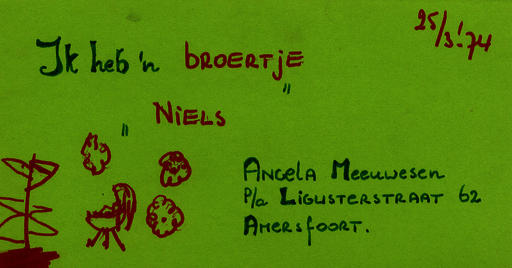 25/3.'74
Ik heb 'n BROERTJE
" NIELS "
ANGELA MEEUWESEN
P/a LIGUSTERSTRAAT 62
AMERSFOORT.